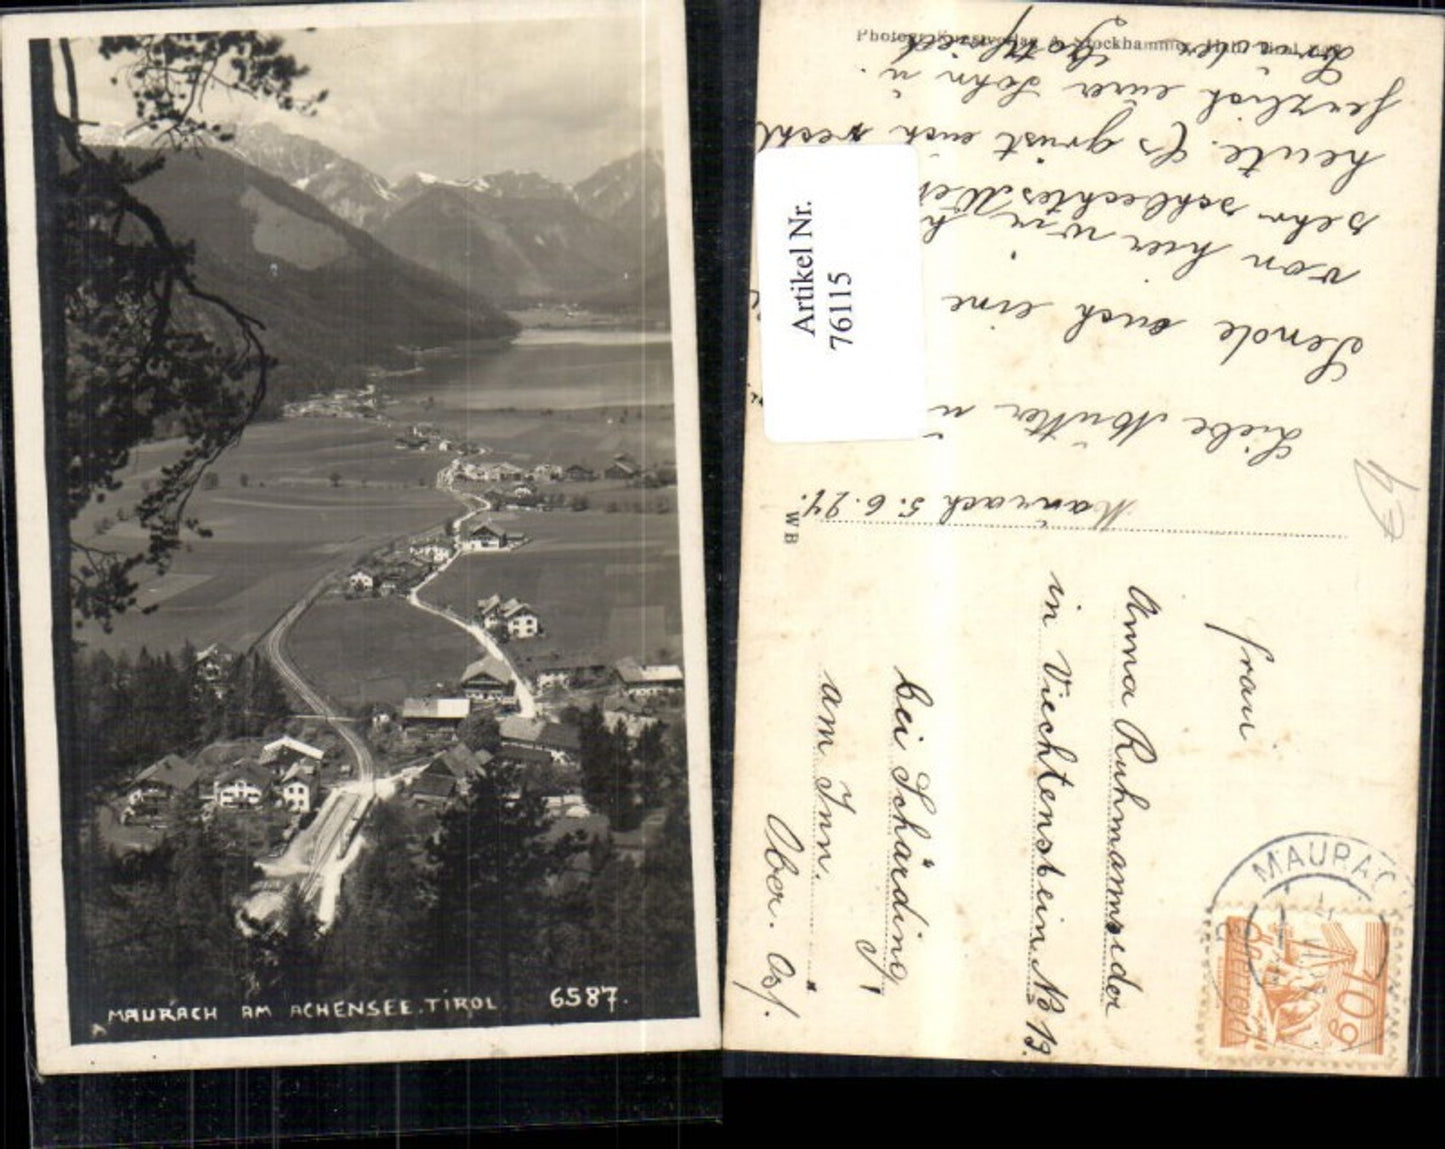 MAURACH AM ACHENSEE. TIROL 6587.
Photogr. Kunstverlag A. Stockhammer, Hall, Tirol
Artikel Nr.
76115
Maurach 5.6.24.
Liebe Mutter u
Sende auch eine
von hier wir h
sehr schlechtes
heute. Es grüst euch recht
herzlich eurer Sohn u.
Bruder Gottfried
WB
Frau
Anna Ruhmannseder
in Viechtenstein No 13.
bei Schärding
am Inn.
Ober. Öst.
MAURACH
60
Österreich